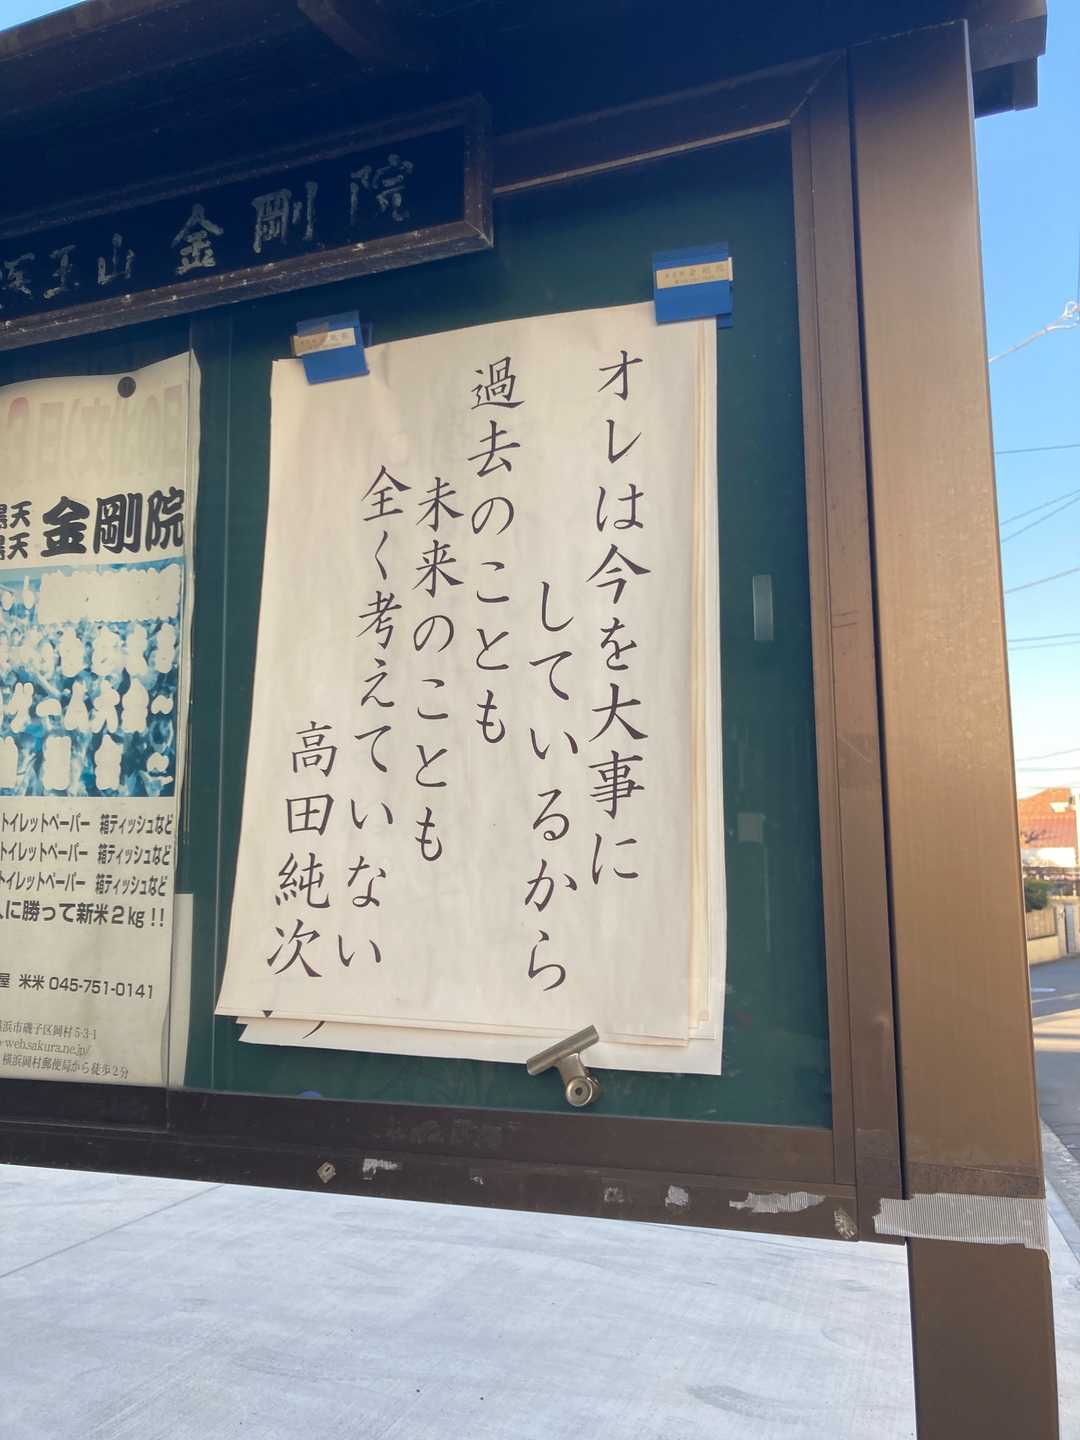 医王山 金剛院
オレは今を大事に
しているから
過去のことも
未来のことも
全く考えていない
高田純次
金剛院
トイレットペーパー 箱ティッシュなど
トイレットペーパー 箱ティッシュなど
トイレットペーパー 箱ティッシュなど
に勝って新米2kg!!
屋 米米 045-751-0141
横浜市磯子区岡村5-3-1
web.sakura.ne.jp/
横浜岡村郵便局から徒歩2分